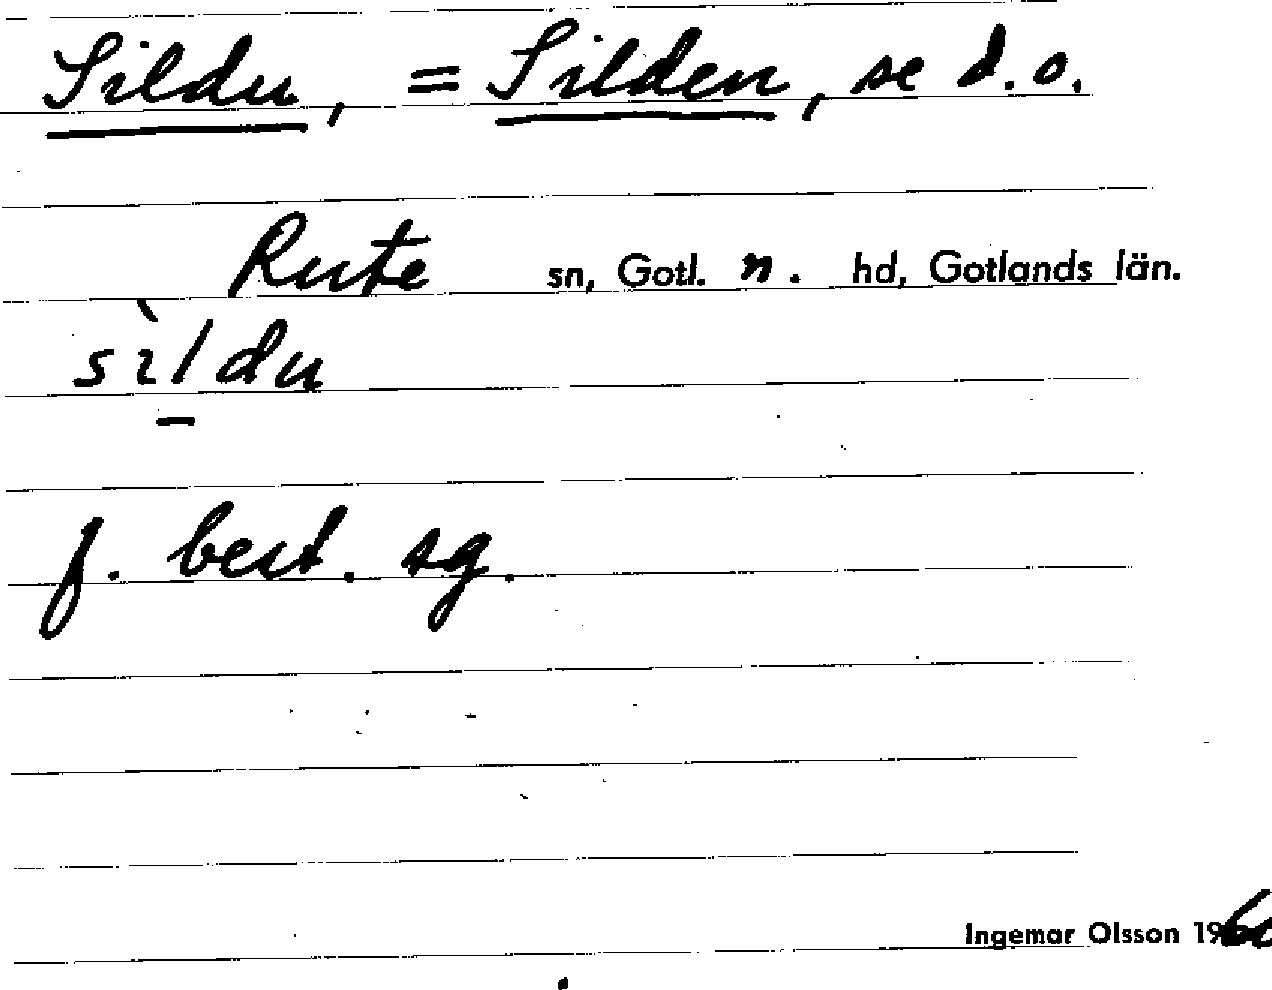 Sildu, = Silden, se d.o.
Rute sn, Gotl. n. hd, Gotlands län.
sìldu
f. best. sg.
Ingemar Olsson